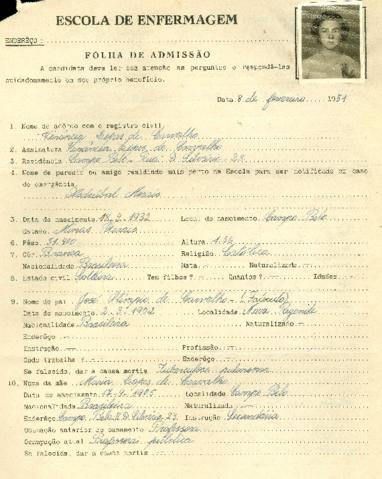 ESCOLA DE ENFERMAGEM
ENDERÊÇO:
FÔLHA DE ADMISSÃO
A candidata deve ler com atenção as perguntas e respondê-las
cuidadosamente em seu próprio benefício.
Data 8 de fevereiro 1951
1. Nome de acôrdo com o registro civil,
Lopes de Carvalho
2. Assinatura Lopes de Carvalho
3. Residência Campo Belo - Rua D. Silvério 28
4. Nome de parente ou amigo residindo mais perto da Escola para ser notificado em caso
de emergência,
Morais
3. Data do nascimento 18-2-1932 Local do nascimento Campo Belo
Estado Minas Gerais
6. Pêso Altura 1.56
7. Côr Branca Religião Católica
Nacionalidade Brasileira Nata Naturalizada
8. Estado civil Solteira Tem filhos? Quantos? Idades
9. Nome do pai José Olimpio de Carvalho (Falecido)
Data do nascimento 2-3-1902 Localidade Nova Rezende
Nacionalidade Brasileira Naturalizado
Endereço
Instrução Profissão
Onde trabalha Endereço
Se falecido, dar a causa mortis Tuberculose pulmonar
10. Nome da mãe Maria Lopes de Carvalho
Data do nascimento 17-9-1905 Localidade Campo Belo
Nacionalidade Brasileira Naturalizada
Endereço Campo Belo R. D. Silvério, 28 Instrução Secundária
Ocupação anterior ao casamento Professora
Ocupação atual Professora pública
Se falecida, dar a causa mortis